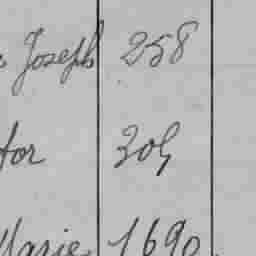 Joseph 258
tor 309
Marie 1690